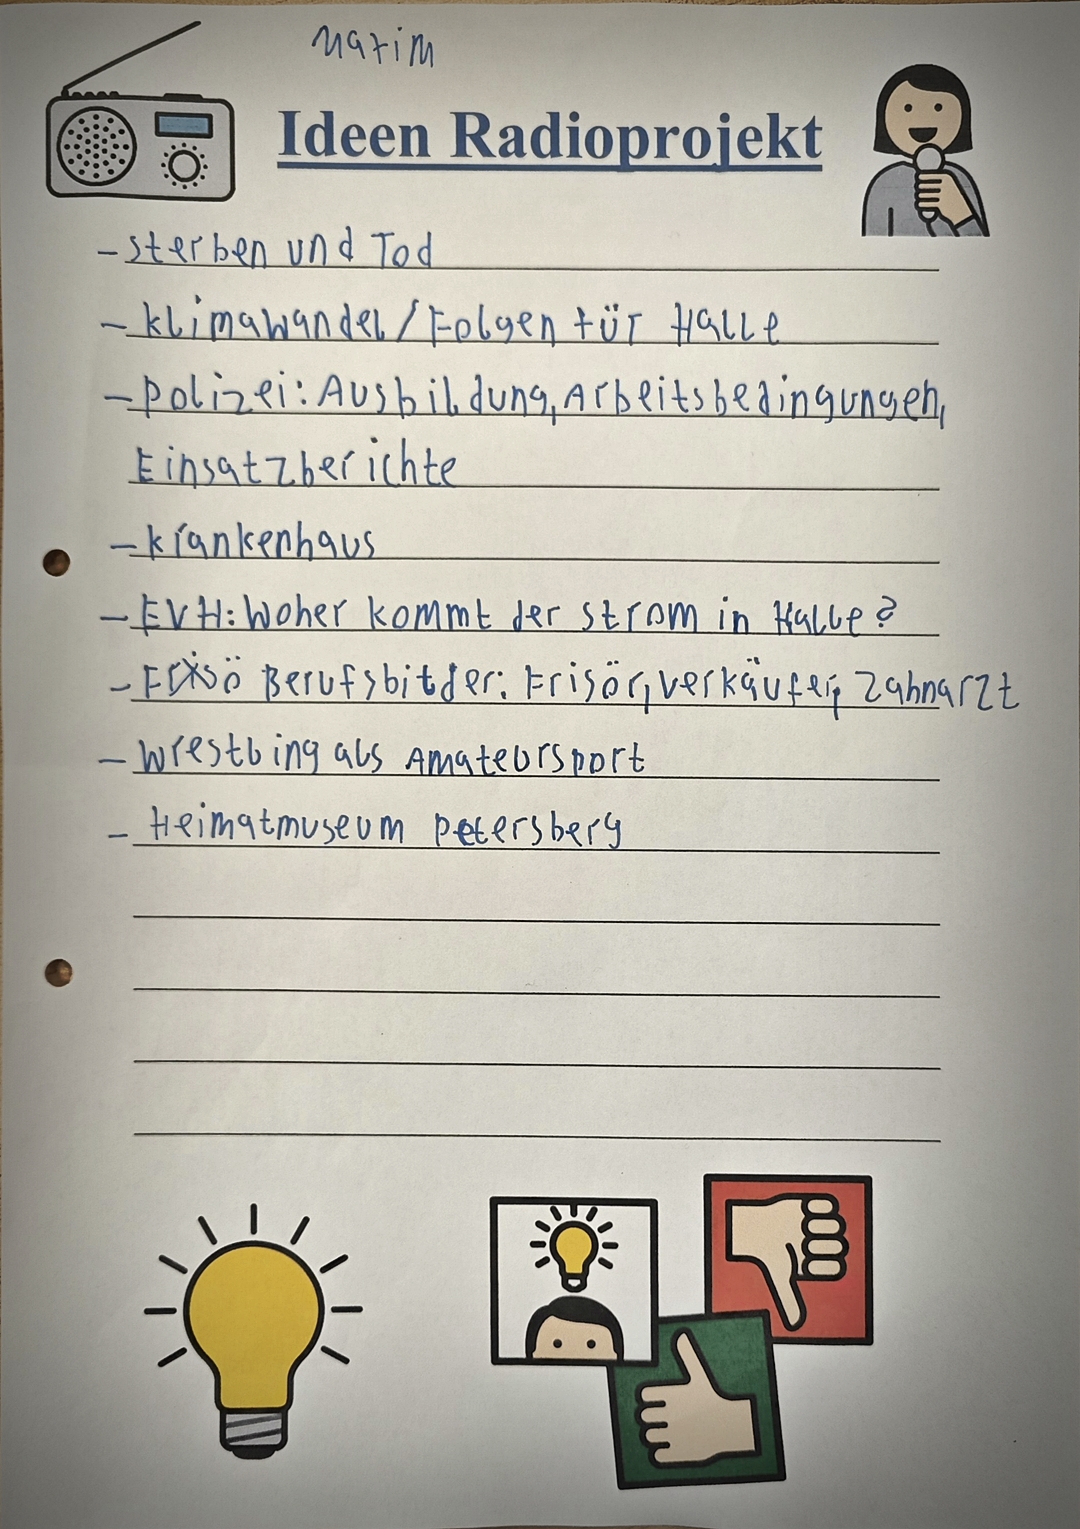 Maxim
Ideen Radioprojekt
- sterben und Tod
- klimawandel / Folgen für Halle
- Polizei: Ausbildung, Arbeitsbedingungen,
Einsatzberichte
- krankenhaus
- EVH: Woher kommt der strom in Halle?
- Berufsbilder: Frisör, verkäufer, Zahnarzt
- Wrestling als Amateursport
- Heimatmuseum Petersberg